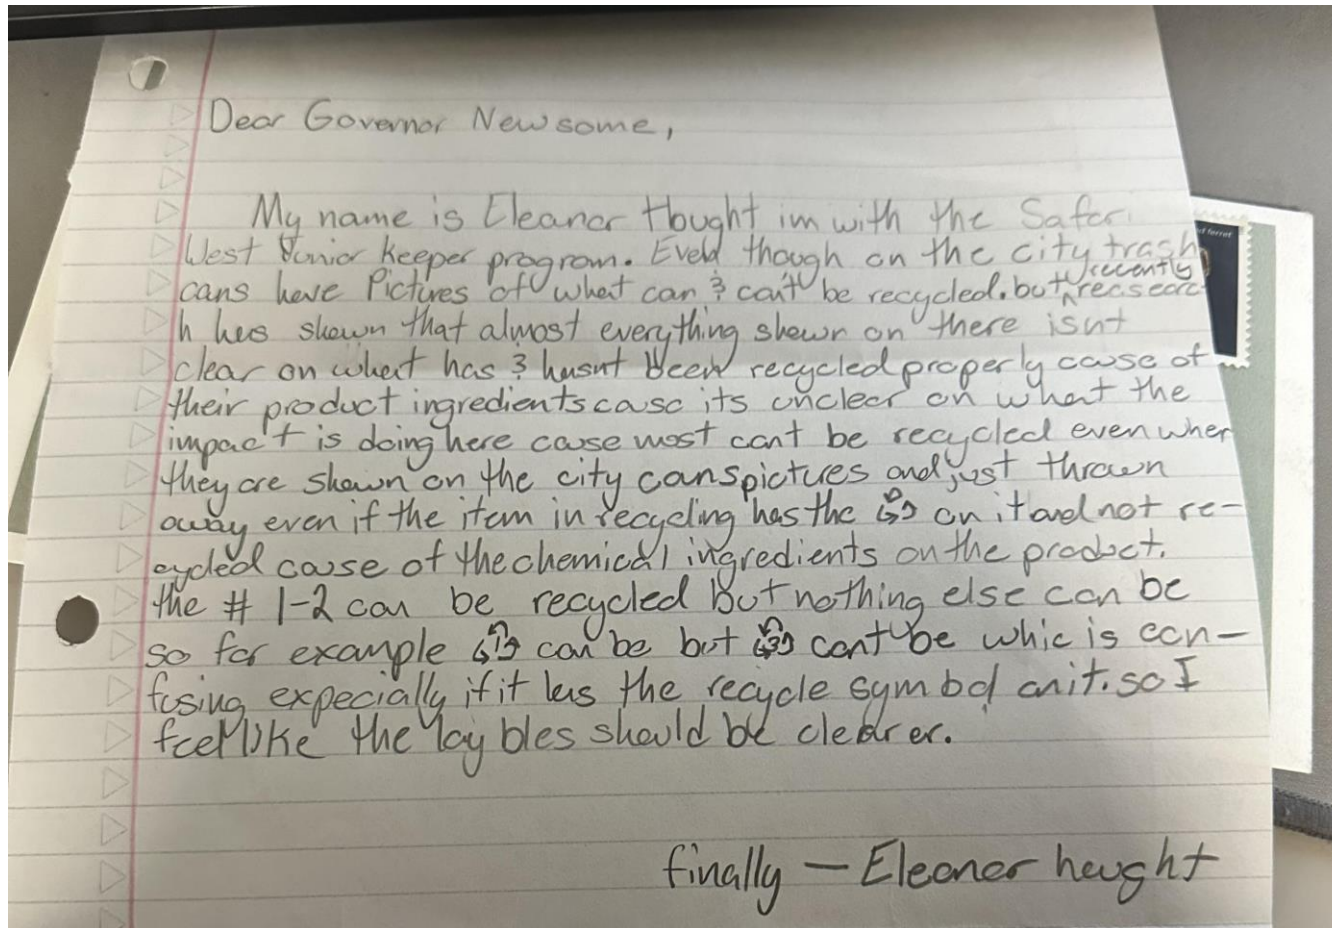 Dear Governor Newsome,
My name is Eleanor Hought im with the Safari
West Junior Keeper program. Even though on the city trash
cans have Pictures of what can & cant be recycled. but recently
research
h has shown that almost everything shown on there isnt
clear on what has & hasnt been recycled properly cause of
their product ingredients cause its unclear on what the
impact is doing here cause most cant be recycled even when
they are shown on the city cans pictures and just thrown
away even if the item in recycling has the on it and not re-
cycled cause of the chemical ingredients on the product.
the # 1-2 can be recycled but nothing else can be
so for example 1 can be but 3 cant be whic is con-
fusing expecially if it has the recycle symbol on it. so I
feel like the lay bles should be clearer.
finally — Eleanor hought